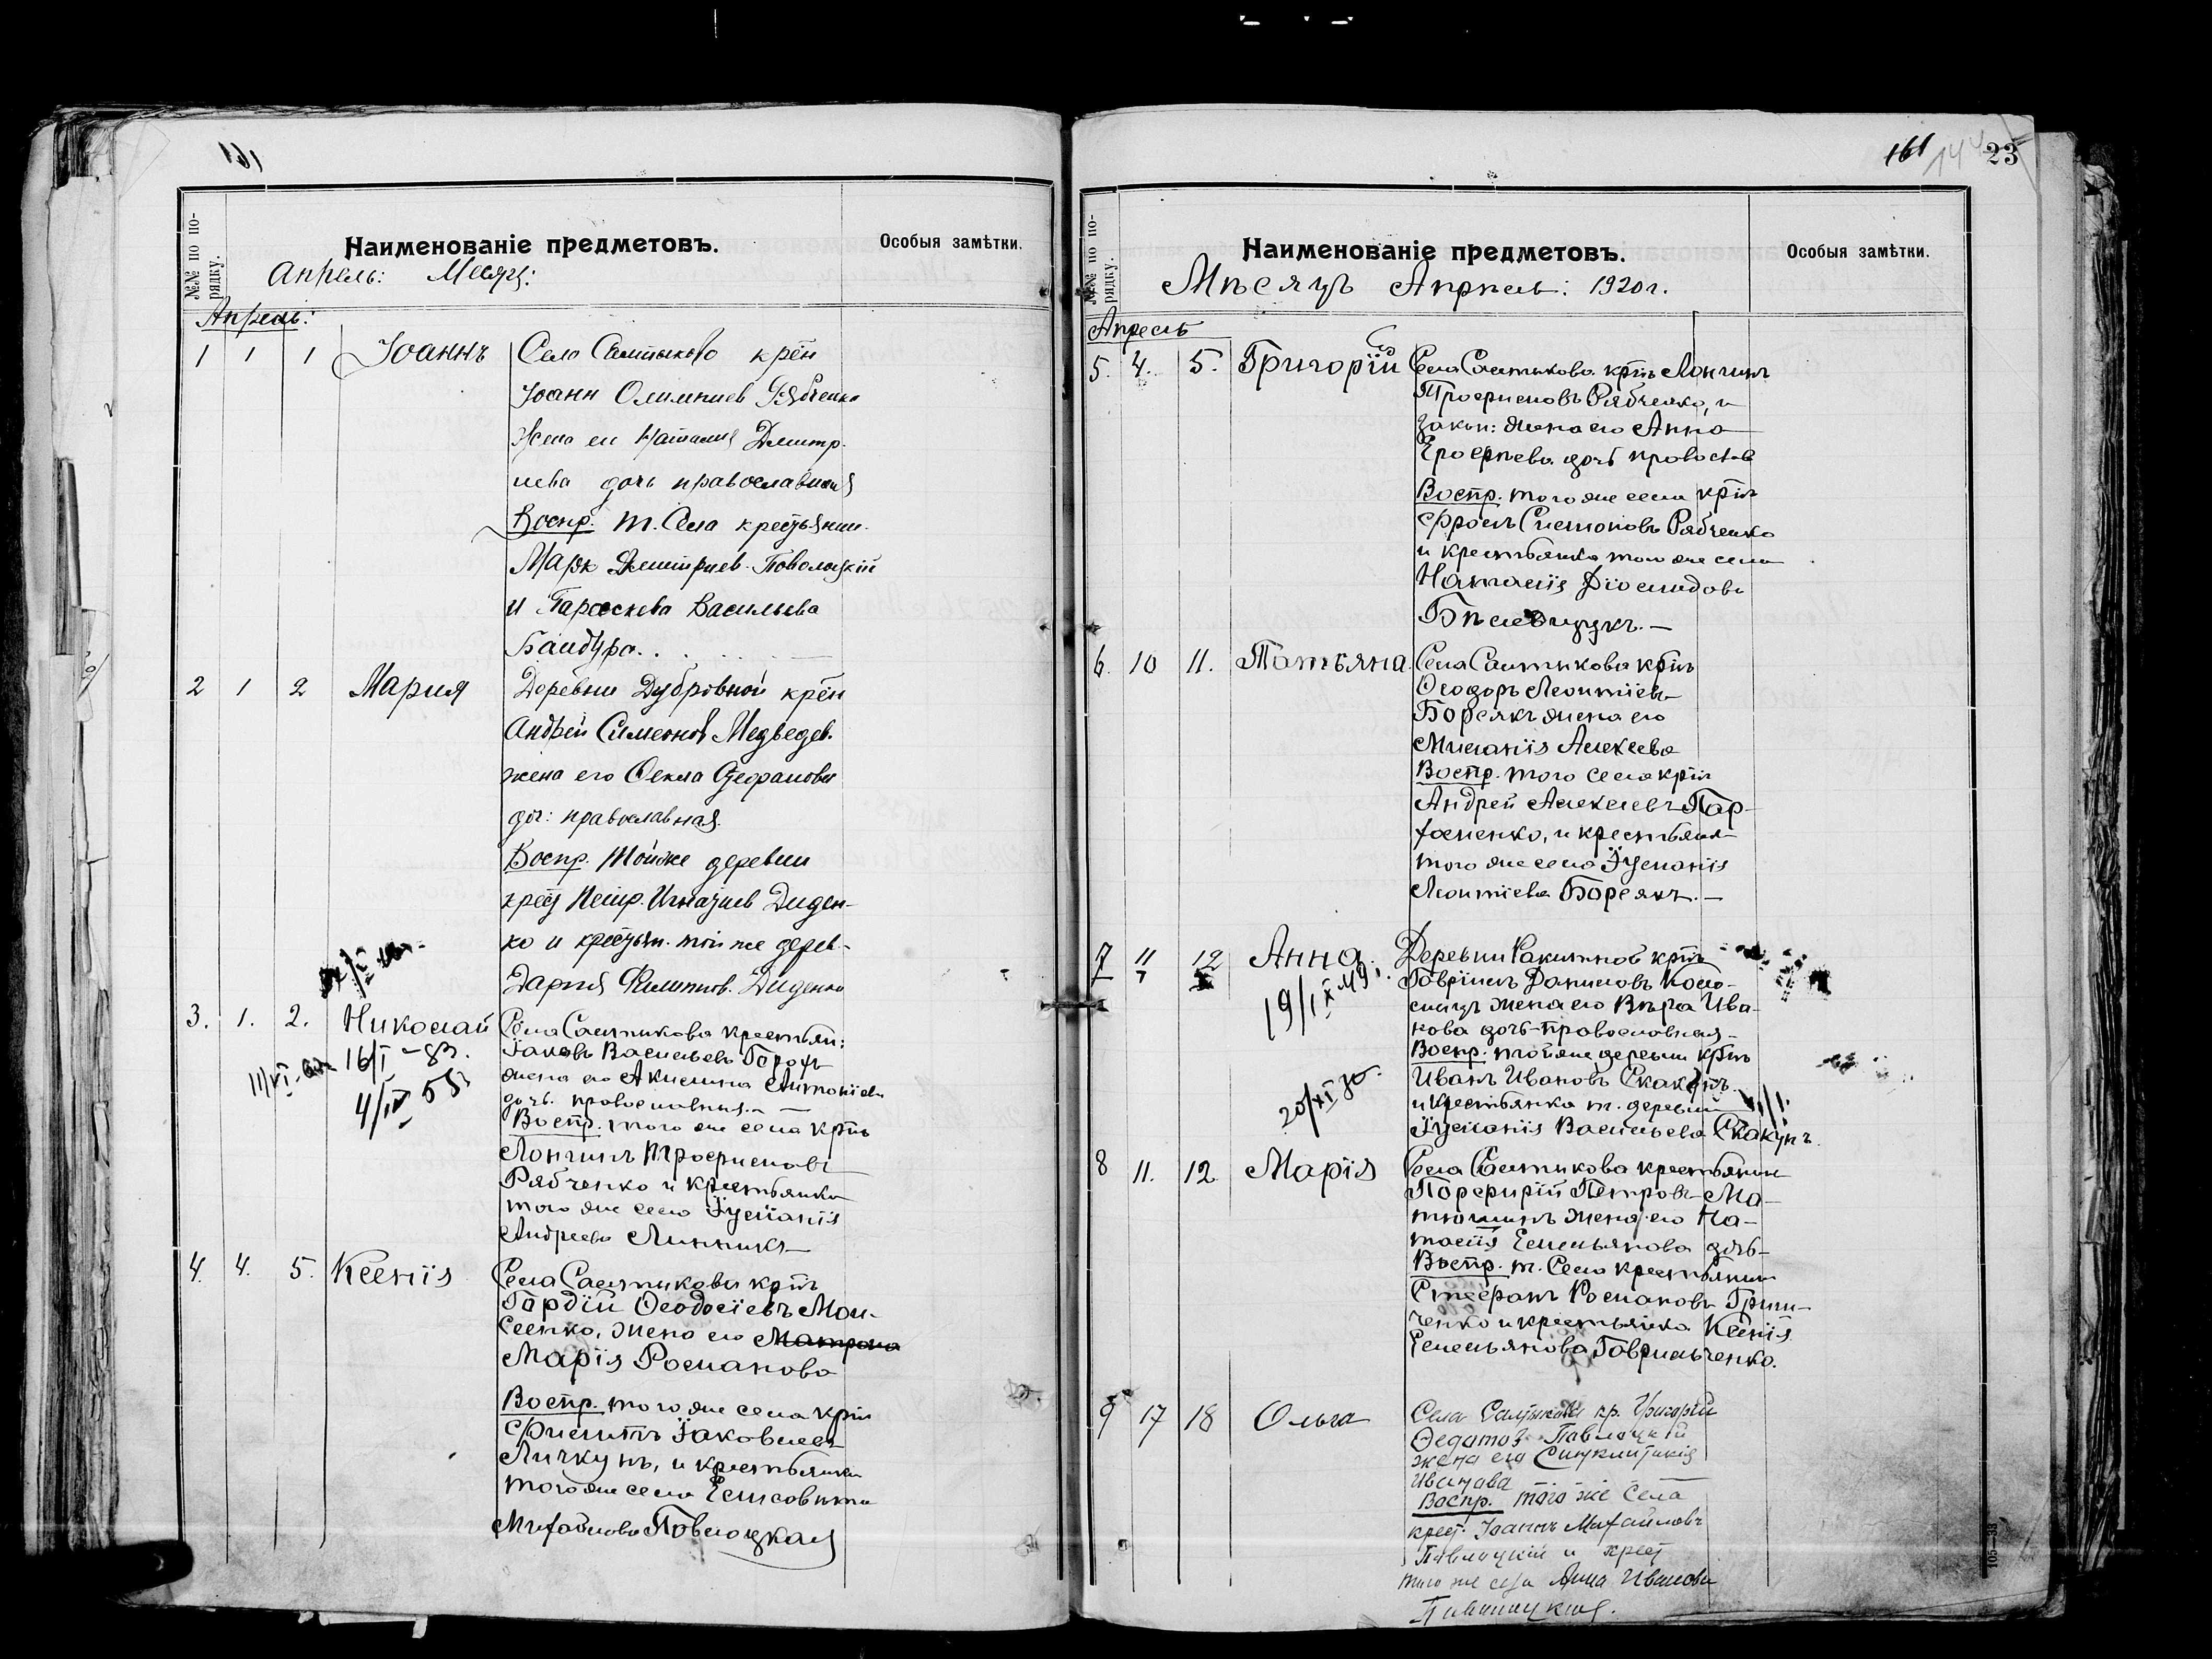 161
№№ по порядку.
Наименованіе предметовъ.
Особыя замѣтки.
Апрель: Месяц:
Апрель:
1 1 1 Іоаннъ Село Салтыково крён
Іоанн Олимпиев Рябченко
жена ег Наталия Дмитр.
иева дочь православная
Воспр. т. Села крестьянин.
Марк ДмитриевПоволоцкій
и Параскева Васильева
Бандура. .
2 1 2 Мария Деревни Дубровной крён
Андрей Симеонов Медведев.
жена его Фекла Стефанова
доч: православная.
Воспр. Тойже деревни
крест Петр. Игнатиев Диден-
ко и крестьян. той же дерев-
Дария Филиппов. Диденко
3. 1. 2. Николай Села Салтикова крестьян:
Іаковъ Васильевъ Горохъ
16/I
жена его Акилина Антоніева
11/VI
4/IV 55
дочь православныя.
Воспр. того же села кртъ
Лонгинъ Трофимовъ
Рябченко и крестьянка
того же села Іуліанія
Андреева Линникъ
4. 4. 5. Ксенія Села Салтикова кртъ
Гордій Ѳеодосіевъ Мои-
сеенко, жена его Матрона
Марія Романова
Воспр. того же села кртъ
Филиппъ Іаковлевъ
Личкунъ, и крестьянка
того же села Елисавета
Михайлова Повлоцкая
161 144 23
№№ по порядку.
Наименованіе предметовъ.
Особыя замѣтки.
Мѣсяцъ Апрѣль: 1920 г.
Апрель
5. 4. 5. Григорій Села Салтикова кртъ Лонгинъ
Трофимовъ Рябченко, и
закон: жена его Анна
Ерофеева дочь православ
Воспр. того же села кртъ
Фролъ Симоновъ Рябченко
и крестьянка того же села
Наталія Діомидова
6. 10 11. Татьяна. Села Салтикова кртъ
Ѳеодоръ Леонтіевъ
Борсякъ жена его
Миланія Алексеева
Воспр. того села кртъ
Андрей Алексеевъ Пар-
хоменко, и крестьянк
того же села Іуліанія
Леонтіева Борсякъ.—
7 11 12 Анна. Деревни Ракитной кртъ
Гавріилъ Даниловъ Коло-
19/IX 49.
мицъ жена его Вѣра Ива-
нова дочь православныя
Воспр. той же деревни кртъ
Иванъ Ивановъ Скакунъ.
20/XI
и крестьянка т. деревни
Іуліанія Васильева Скакунъ.
8 11. 12 Марія Села Салтикова крестьянин
Порфирій Петровъ Ма-
тюшинъ жена его На-
талія Емельянова дочь
Воспр. т. Села крестьянин
Стефанъ Романовъ Гриш-
ченко и крестьянка Ксенія
Емельянова Гаврильченко.
9 17 18 Ольга Села Салтыкова кр. Григорій
Федотов Павлоцкій
жена его Синклитикія
Иванова
Воспр. того же Села
крест. Іоаннъ Михайловъ
Павлоцкій и крест
того же села Анна Иванова
Павлоцкая.
105—33